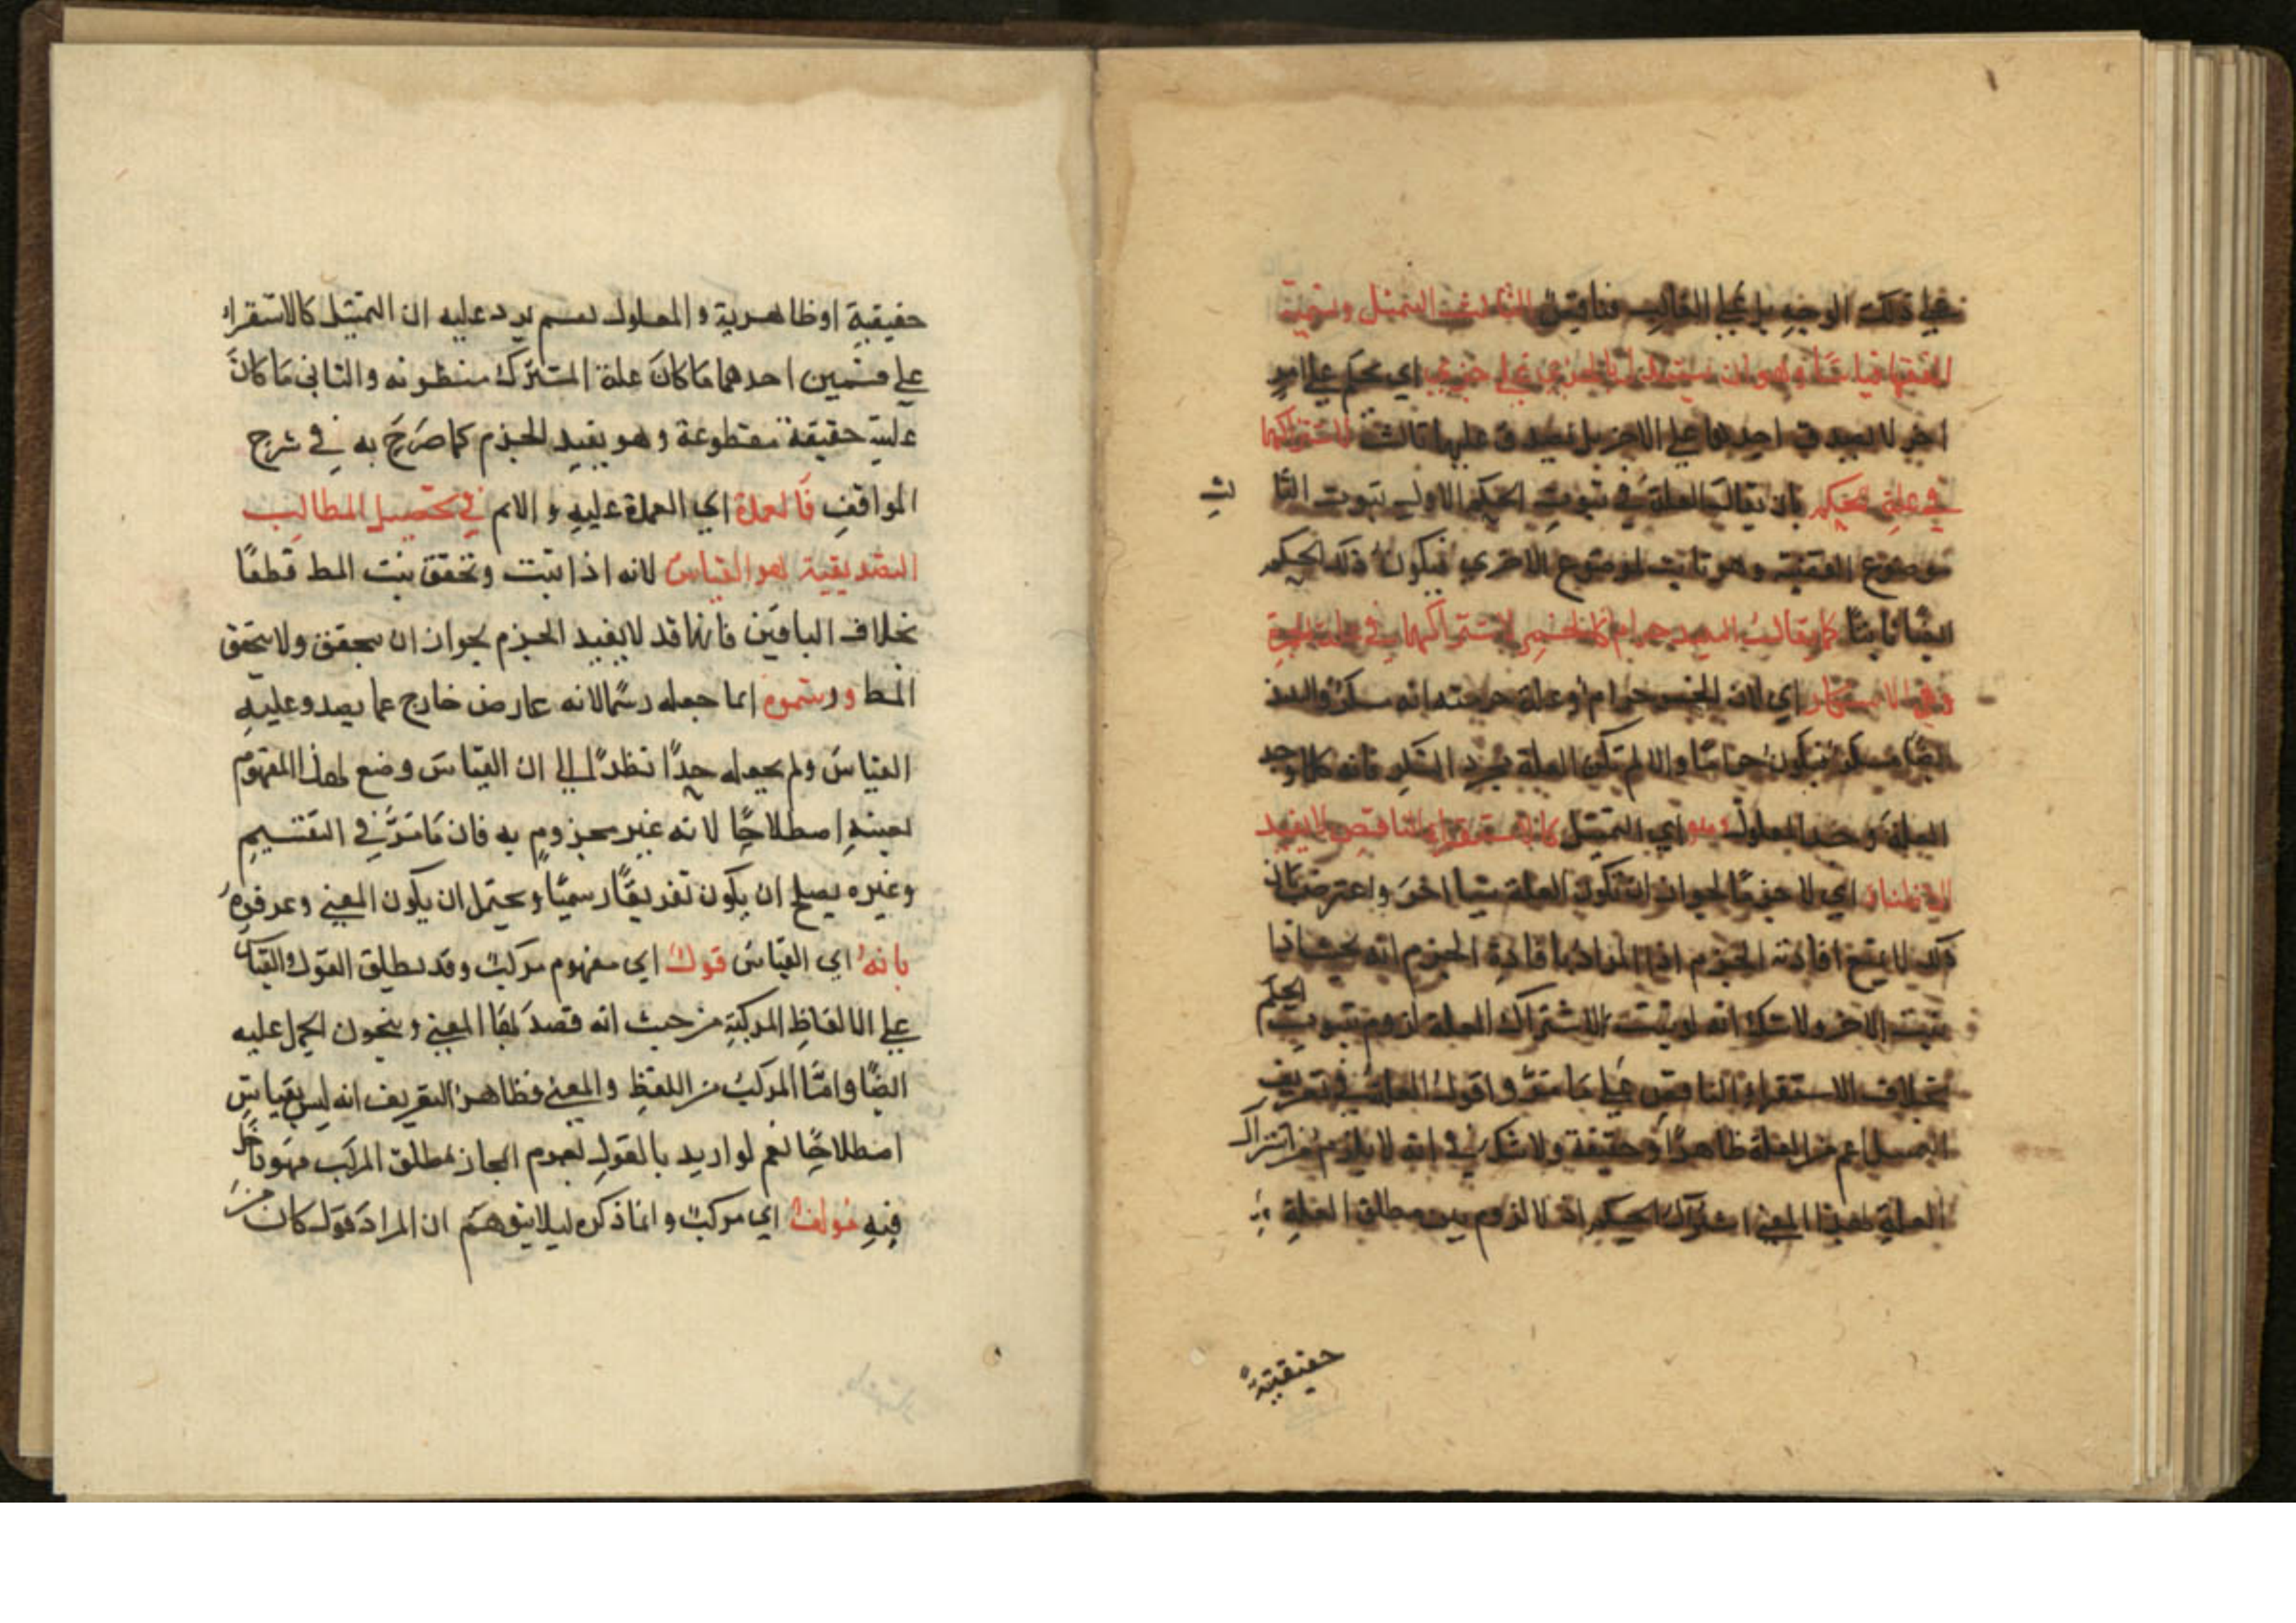 على ذلك الوجه بل على الغالب فناقص الثالث التمثيل وتسميه
الفقها قياسا وهو ان يستدل بالجزءي على جزءي اي يحكم على امر
اخر لا يصدق احدهما على الاخر بل يصدق عليهما ثالث لاشتراكهما
في علة الحكم بان يقال العلة في ثبوت الحكم الاول ثبوت الثا
لث
موضوع القضية وهو ثابت لموضوع الاخرى فيكون ذلك الحكم
ايضا ثابتا كما يقال النبيذ حرام كالخمر لاشتراكهما في علة الحرمة
وهي الاسكار اي لان الخمر حرام وعلة حرمته انه مسكر والنبيذ
ايضا مسكر فيكون حراما والا لم تكن العلة مجرد السكر فانه كلما وجد
العلة وجد المعلول وهو اي التمثيل كالاستقراء الناقص لا يفيد
الا ظنا اي لا جزما لجواز ان تكون العلة شيا اخر واعترض بان
ذلك لا يمنع افادته الجزم اذ المراد بافادة الجزم انه بحيث اذا
ثبت الاخر ولا شك انه لو ثبت الاشتراك العلة لزم ثبوت الحكم
بخلاف الاستقراء الناقص على ما مر واقول العلة في تعريف
التمثيل اعم من العلة ظاهرا وحقيقة ولا شك في انه لا يلزم من اشتراك
العلة بهذا المعنى اشتراك الحكم اذ لا لزوم بين مطلق العلة
حقيقية
حقيقية او ظاهرية والمعلول نعم يرد عليه ان التمثيل كالاستقراء
على قسمين احدهما ما كان علة المشترك مظنونه والثاني ما كان
علية حقيقة مقطوعة وهو يفيد الجزم كما صرح به في شرح
المواقف فالعمدة اي العمدة عليه والاهم في تحصيل المطالب
التصديقية هو القياس لانه اذا ثبت وتحقق يثبت المط قطعا
بخلاف الباقين فانهما قد لا يفيد الجزم لجواز ان يتحقق ولا يتحقق
المط ورسموه انما جعله رسما لانه عارض خارج عما يصدق عليه
القياس ولم يجعله حدا نظرا الى ان القياس وضع لهذا المفهوم
بعينه اصطلاحا لانه غير مجزوم به فان ما مر في التقسيم
وغيره يصلح ان يكون تعريفا رسميا ويحتمل ان يكون المعنى وعرفوه
بانه اي القياس قول اي مفهوم مركب وقد يطلق القول والقياس
على الالفاظ المركبة من حيث انه قصد بها المعنى ويجوز الحمل عليه
ايضا واما المركب من اللفظ والمعنى فظاهر التعريف انه ليس بقياس
اصطلاحا نعم لو اريد بالقول لعموم المجاز مطلق المركب فهو داخل
فيه مولف اي مركب وانما ذكره ليلا يتوهم ان المراد قول كان من